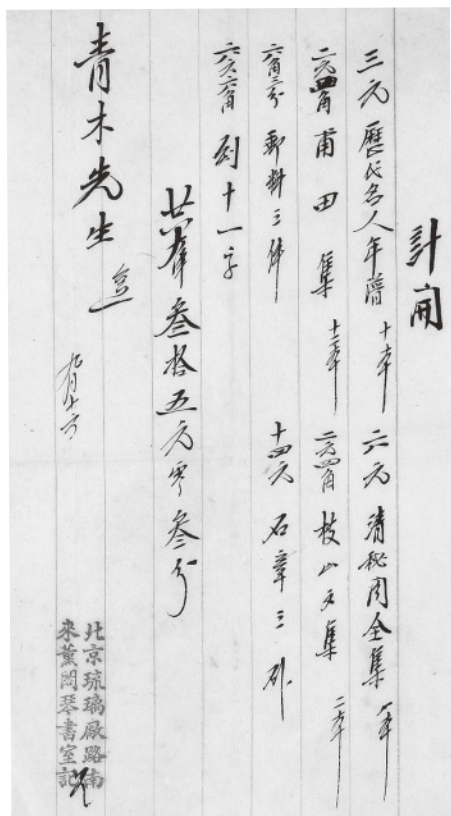 計開
三元 歷代名人年譜 十本 六元 清秘閣全集
二元四角 甫田集 十二本 二元四角 枝山文集 二本
六角三分 郵料三件 十四元 石章三
六元六角 刻十一字
共洋叁拾五元零叁分
青木先生
九月十
北京琉璃廠路南
來薰閣琴書室記